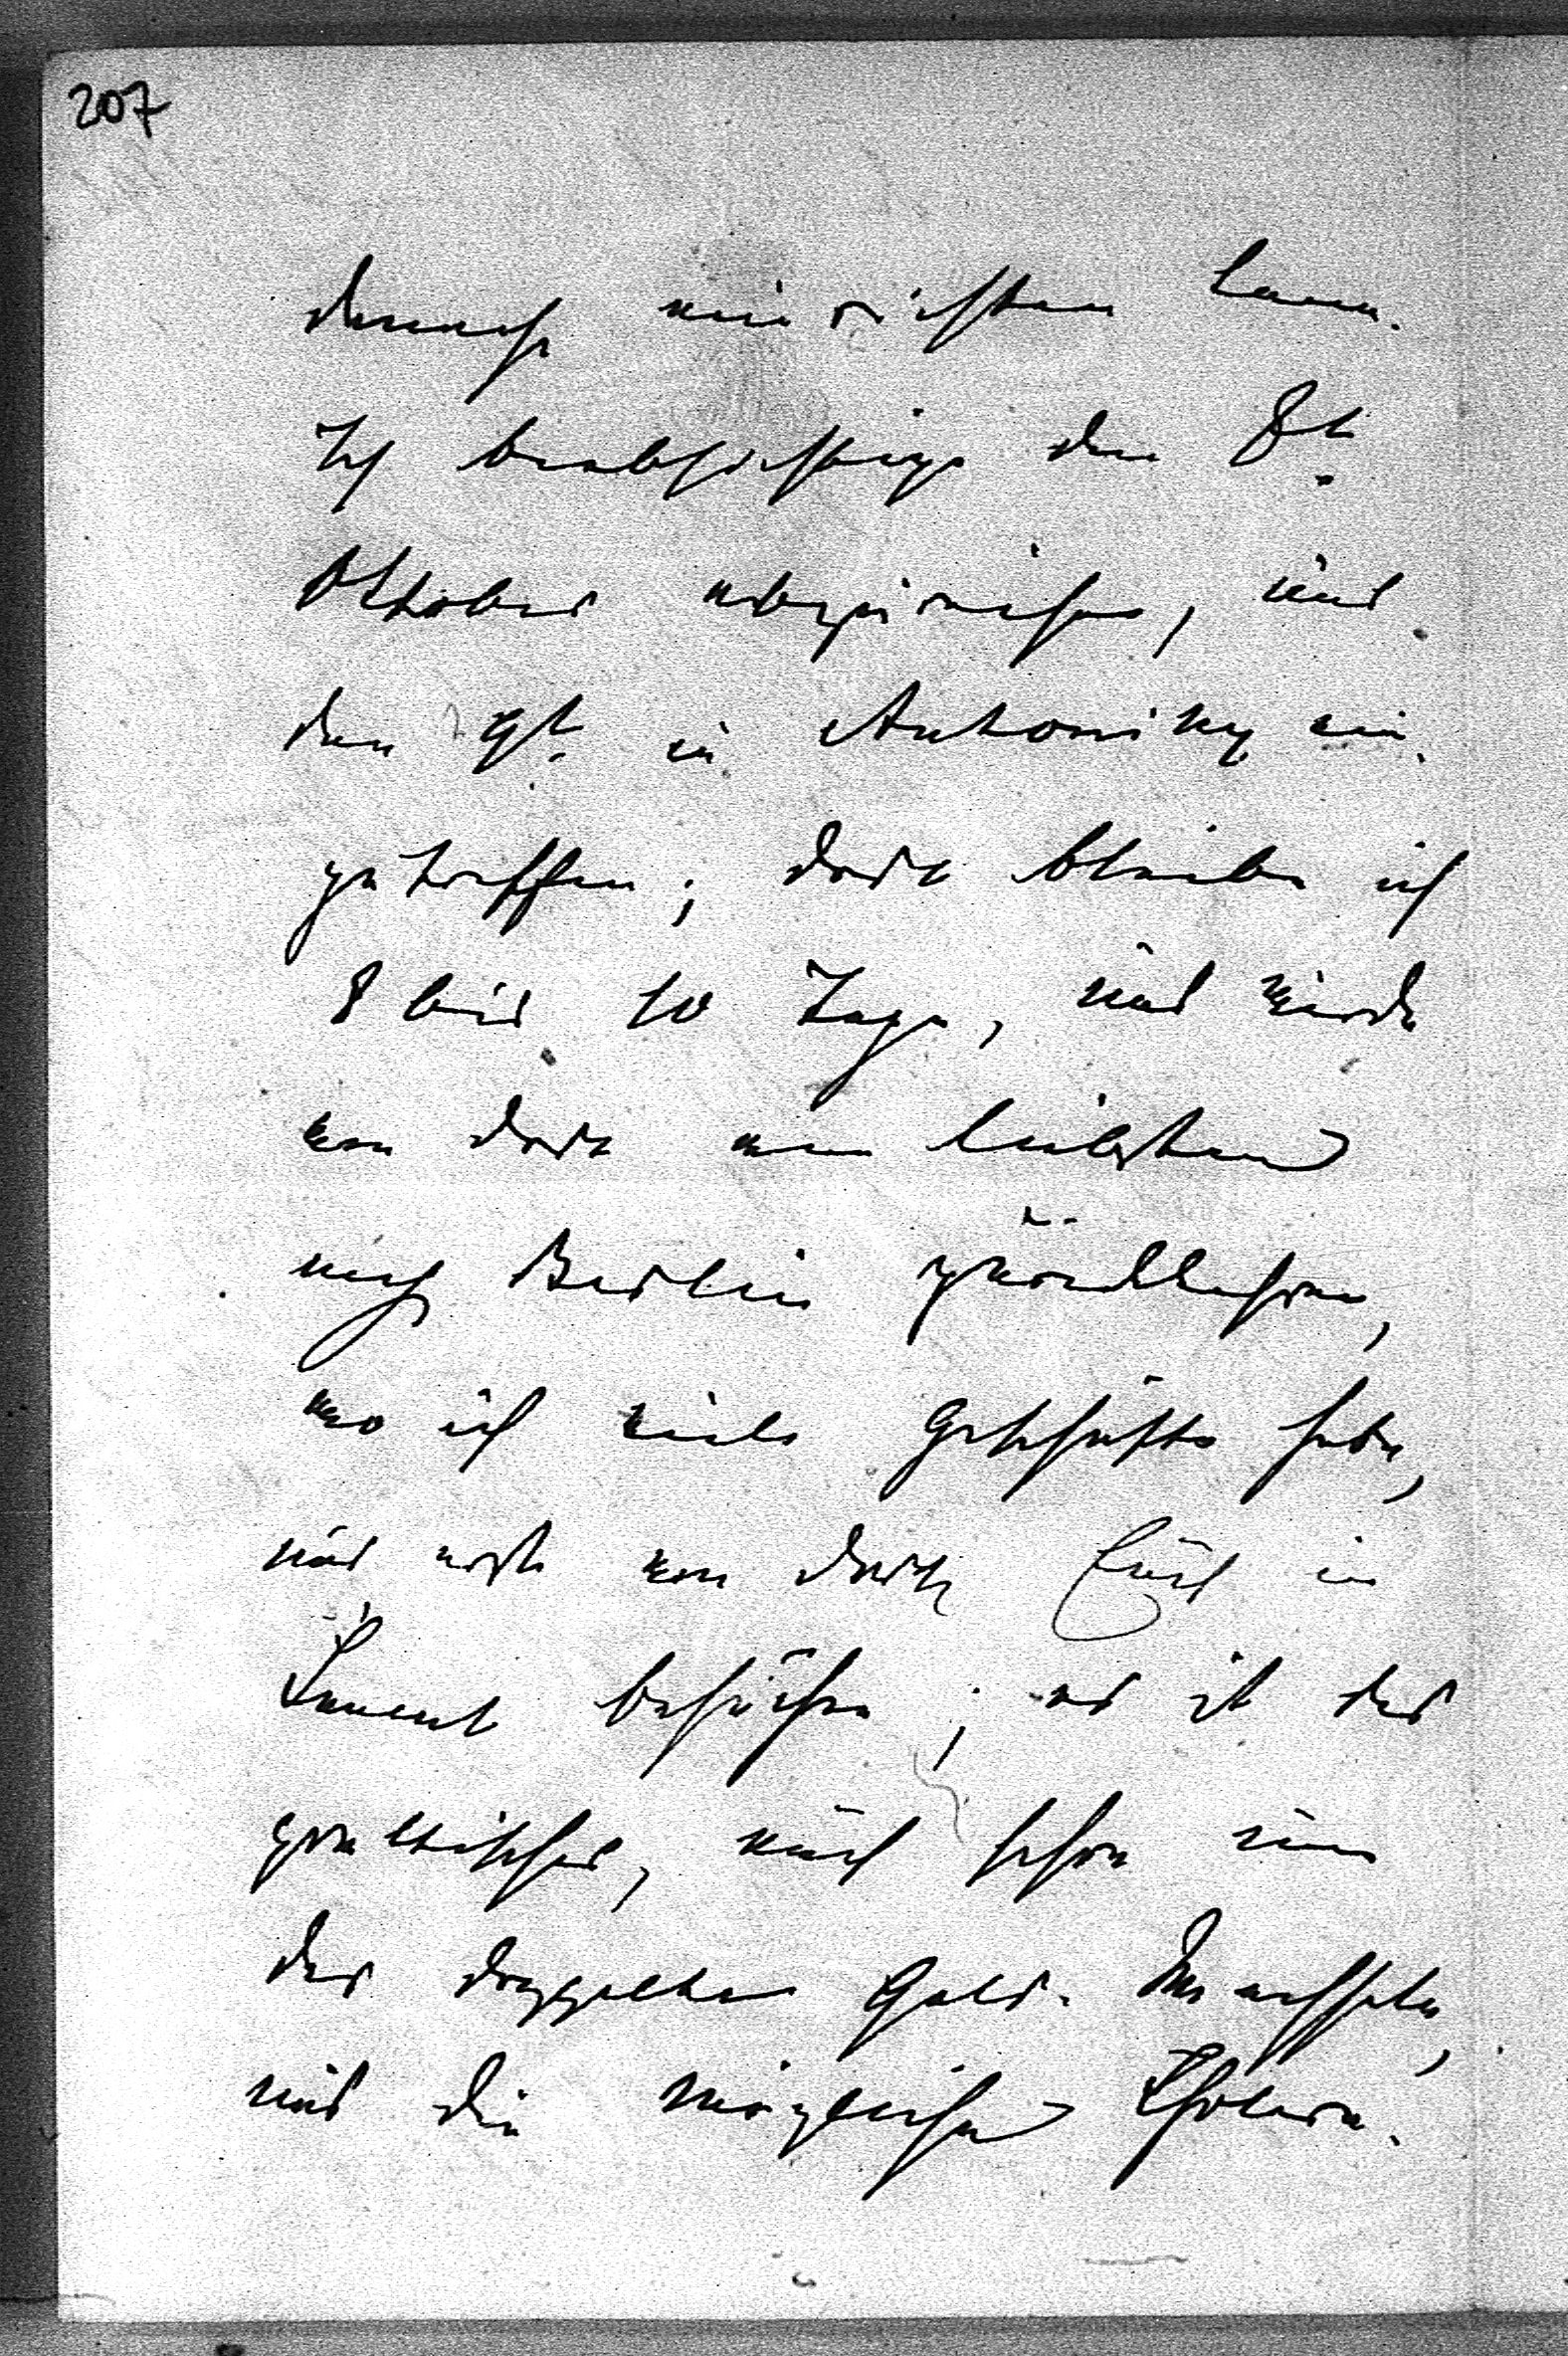 207
danach einrichten kann.
Ich beabsichtige den 8t.
Oktober abzureisen, und
den 9t. in Antonin ein-
zutreffen; dort bleibe ich
8 bis 10 Tage, und würde
von dort am liebsten
nach Berlin zurückkehren,
wo ich viele Geschäfte habe,
und erst von dort Euch in
besuchen; es ist das
praktischer, auch schon um
der doppelten Geld-
und die mögliche Cholera.